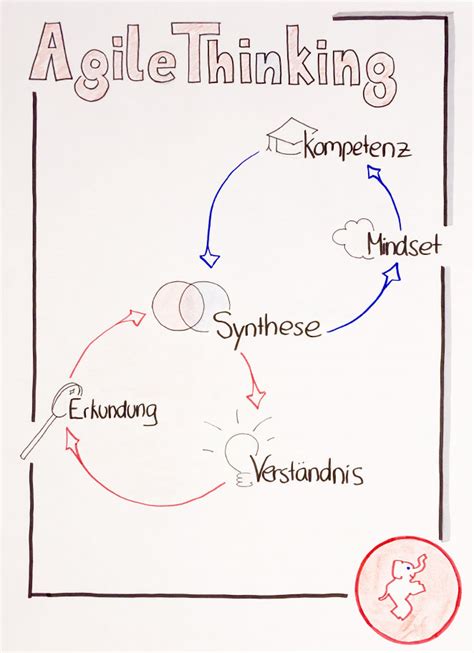 Agile Thinking
Kompetenz
Mindset
Synthese
Erkundung
Verständnis